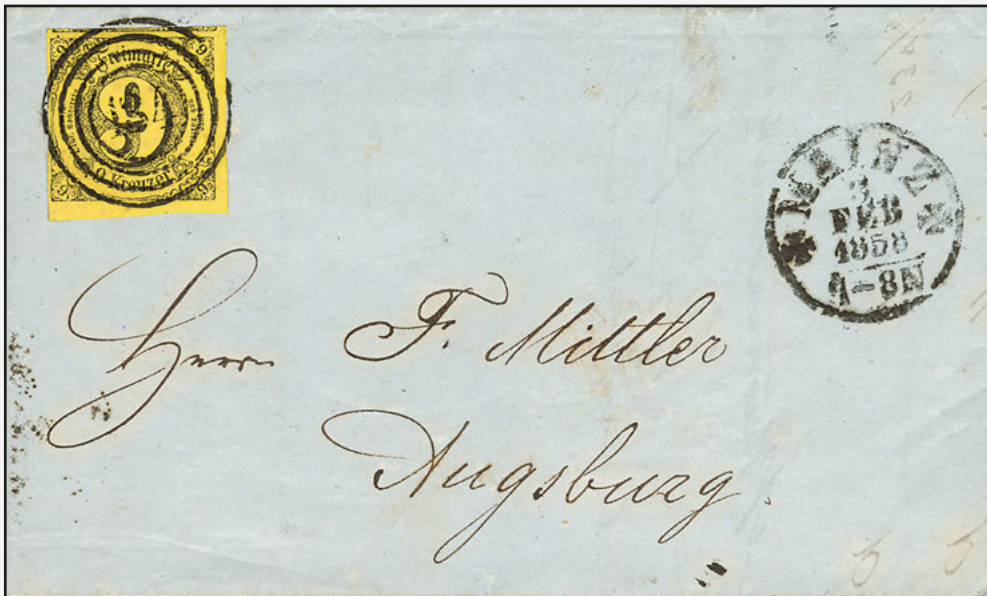 9 9
Freimarke
9
Kreuzer
9 9
MAINZ
3
FEB
1858
-8N
Herrn F. Mittler
Augsburg